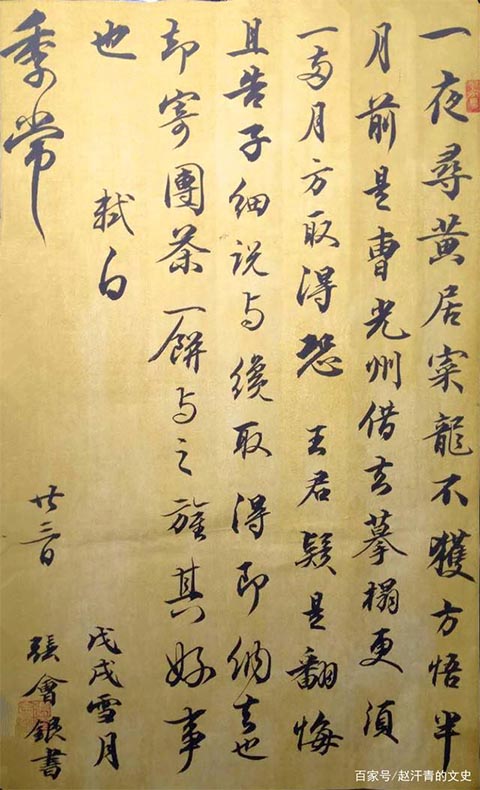 一夜尋黃居寀龍不獲方悟半
月前是曹光州借去摹榻更須
一兩月方取得恐 王君疑是翻悔
且告子細說与纔取得即納去也
却寄團茶一餅与之旌其好事
也 軾白
季常
廿三日
戊戌雪月
張會銀書
百家号/赵汗青的文史